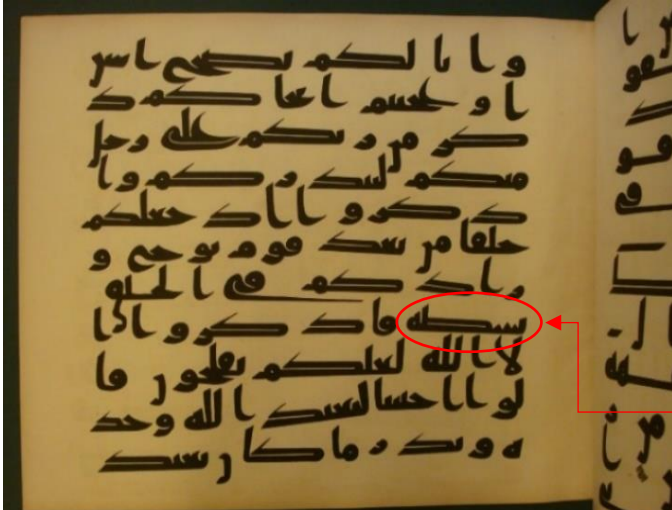 وانا لكم نصح امين
او عجبتم ان جاكم ذ
كر من ربكم على رجل
منكم لينذركم وا
ذكروا اذ جعلكم
خلفا من بعد قوم نوح و
زادكم في الخلق
بسطه فاذكروا ا
لا الله لعلكم تفلحون قا
لوا اجئتنا لنعبد الله وحد
ه ونذر ما كان يعبد